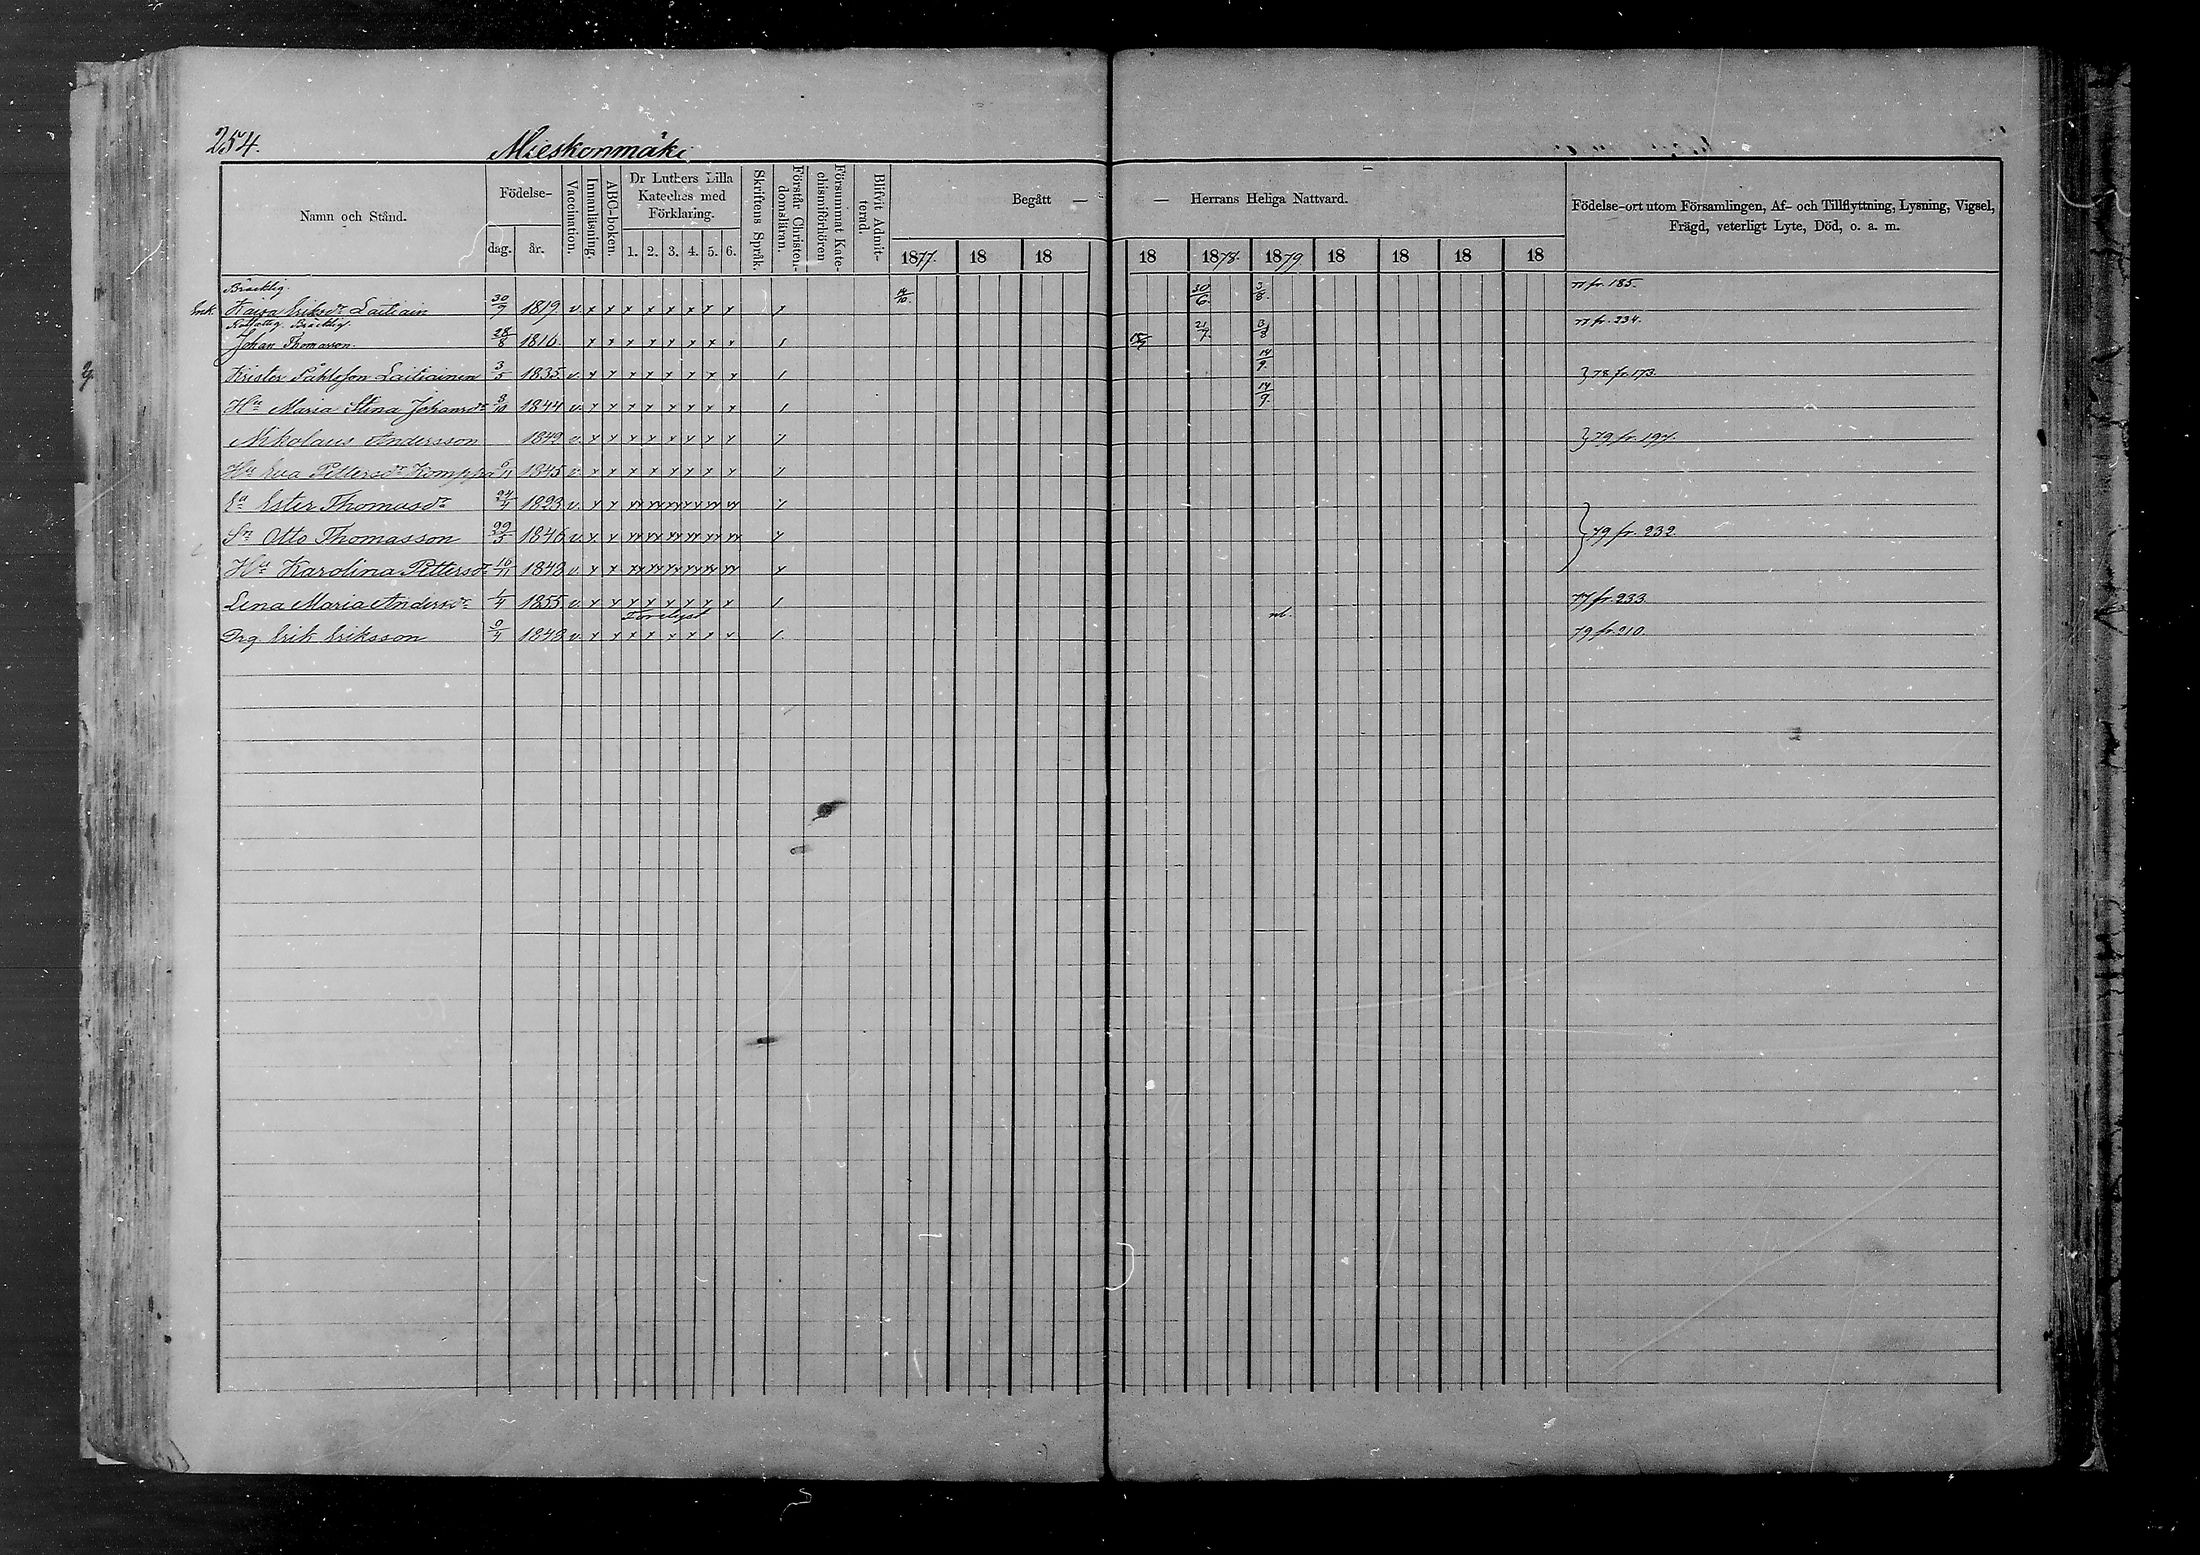 254.
Mieskonmäki
Namn och Stånd.
Födelse-
dag.
år.
Vaccination.
Innanläsning.
ABC-boken.
Dr Luthers Lilla
Kateches med
Förklaring.
1. 2. 3. 4. 5. 6.
Skriftens Språk.
Förstår Christen-
domsläran.
Försummat Kate-
chismiförhören
Blifvit Admit-
terad.
Begått —
— Herrans Heliga Nattvard.
1877. 18 18 18 1878. 1879 18 18 18 18
Födelse-ort utom Församlingen, Af- och Tillflyttning, Lysning, Vigsel,
Frägd, veterligt Lyte, Död, o. a. m.
Bräcklig.
Enk. Kaisa Eriksdr Laitiain 30/9 1819. v. x x x x x x x x 14/10. 30/6. 3/8. 77 fr. 185.
Bräcklig.
Johan Thomasson. 28/8 1816. x x x x x x x x 21/7. 3/8 77 fr. 234.
Krister Påhlsson Laitiainen 3/5 1835. v. x x x x x x x x 14/9. } 78 fr. 173.
Hu Maria Stina Johansdr 8/10 1844 v. x x x x x x x x 14/9.
Nikolaus Andersson 1849 v. x x x x x x x x } 79 fr. 197.
Hu Eva Pettersdr Komppa 6/11 1845 v. x x x x x x x x
Ea Ester Thomasdr 24/4 1823 v. x x xx xx xx xx xx xx
Sn Otto Thomasson 29/3 1846 v. x x xx xx xx xx xx xx } 79 fr. 232.
Hu Karolina Pettersdr 16/11 1843 v. x x xx xx xx xx xx xx
Lena Maria Andersdr 1/4 1855 v. x x x x x x x x 77 fr. 233.
Förelyst
nb.
Drg Erik Eriksson 9/4 1843 v. x x x x x x x x 79 fr. 210.